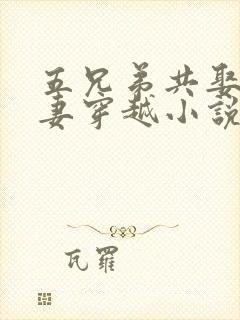 五兄弟共娶
妻穿越小説
瓦羅